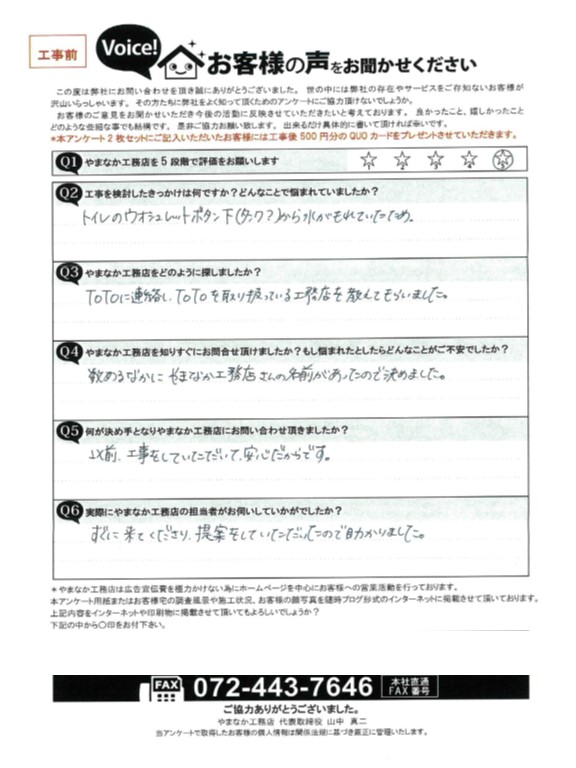 工事前
Voice!
お客様の声をお聞かせください
この度は弊社にお問い合わせを頂き誠にありがとうございました。 世の中には弊社の存在やサービスをご存知ないお客様が
沢山いらっしゃいます。 その方たちに弊社をよく知って頂くためのアンケートにご協力頂けないでしょうか。
お客様のご意見をお聞かせいただき今後の活動に反映させていただきたいと考えております。 良かったこと、嬉しかったこと
どのような些細な事でも結構です。 是非ご協力お願い致します。 出来るだけ具体的に書いて頂ければ幸いです。
*本アンケート2枚セットにご記入いただいたお客様には工事後500円分のQUOカードをプレゼントさせていただきます。
Q1 やまなか工務店を5段階で評価をお願いします
1 2 3 4 5
Q2 工事を検討したきっかけは何ですか?どんなことで悩まれていましたか?
トイレのウオシュレットボタン下(タンク?)から水がもれていたため。
Q3 やまなか工務店をどのように探しましたか?
TOTOに連絡し、TOTOを取り扱っている工務店を教えてもらいました。
Q4 やまなか工務店を知りすぐにお問合せ頂けましたか?もし悩まれたとしたらどんなことがご不安でしたか?
数あるなかに やまなか工務店さんの名前があったので決めました。
Q5 何が決め手となりやまなか工務店にお問い合わせ頂きましたか?
以前、工事をしていただいて、安心だからです。
Q6 実際にやまなか工務店の担当者がお伺いしていかがでしたか?
すぐに来てくださり、提案をしていただいたので助かりました。
*やまなか工務店は広告宣伝費を極力かけない為にホームページを中心にお客様への営業活動を行っております。
本アンケート用紙またはお客様宅の調査風景や施工状況、お客様の顔写真を随時ブログ形式のインターネットに掲載させて頂いております。
上記内容をインターネットや印刷物に掲載させて頂いてもよろしいでしょうか?
下記の中から〇印をお付下さい。
FAX 072-443-7646 本社直通
FAX番号
ご協力ありがとうございました。
やまなか工務店 代表取締役 山中 真二
当アンケートで取得したお客様の個人情報は関係法規に基づき厳正に管理いたします。